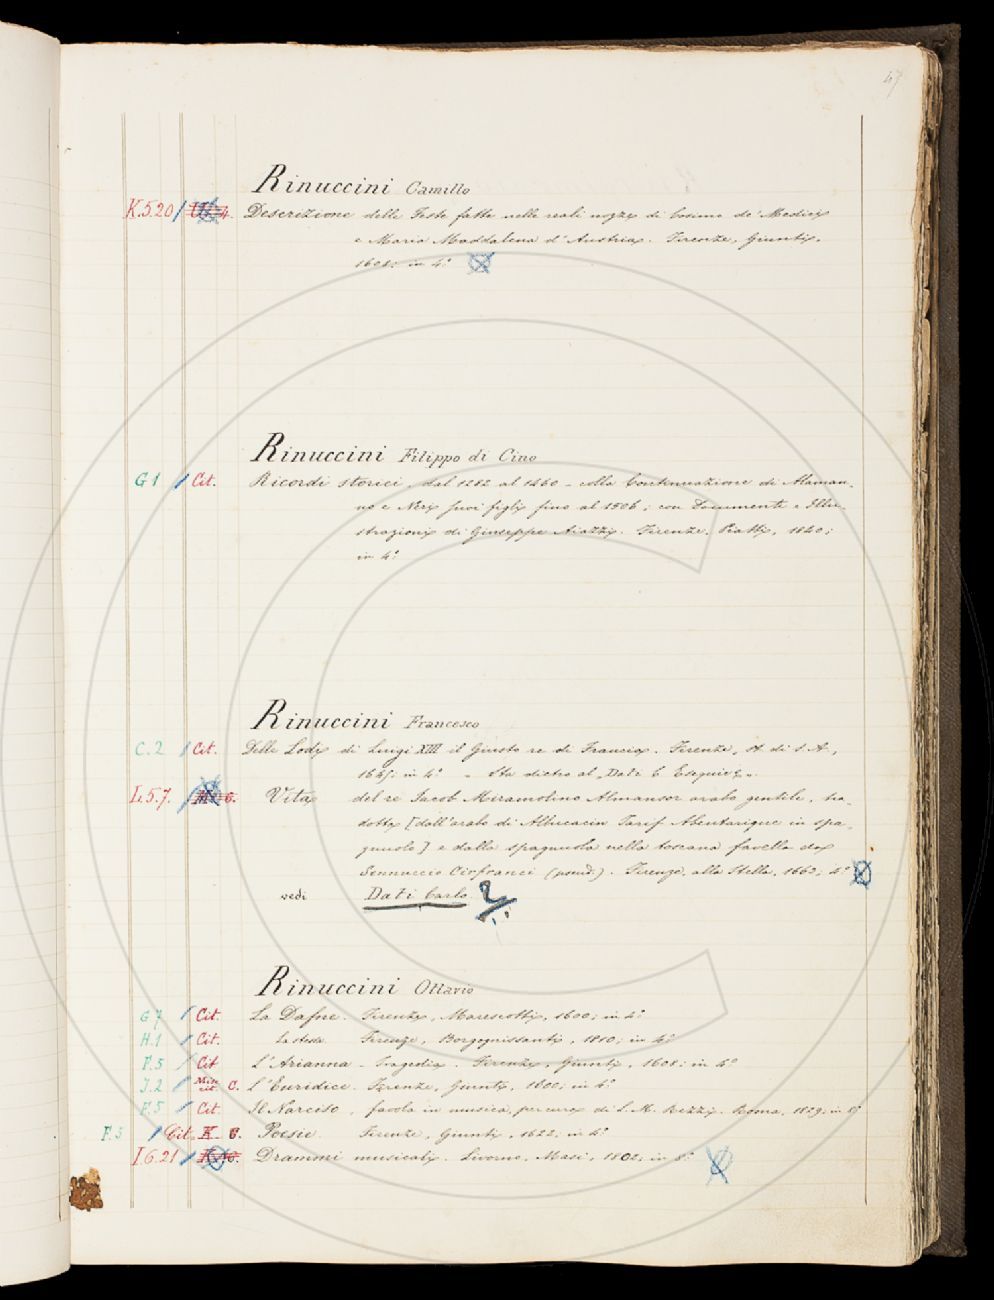 47
Rinuccini Camillo
K.5.20 / Descrizione delle Feste fatte nelle reali nozze di Cosimo de' Medici
e Maria Maddalena d'Austria. Firenze, Giunti,
1608; in 4.º
Rinuccini Filippo di Cino
G 1 / Cit. Ricordi storici, dal 1282 al 1460 - colla Continuazione di Alaman-
no e Neri suoi figli fino al 1506; con Documenti e Illu-
strazioni di Giuseppe Aiazzi. Firenze, Piatti, 1840;
in 4.º
Rinuccini Francesco
C.2 / Cit. Delle Lodi di Luigi XIII il Giusto re di Francia. Firenze, A. di S.A.,
in 4.º - Sta dietro al „Dati C Esequie
L.5.7. / Vita del re Jacob Miramolino Almansor arabo gentile, tra-
dotta [dall'arabo di Albucacin Tarif Abentarique in spa-
gnuolo] e dalla spagnuola nella toscana favella da
Sennuccio Cirfranci (pseud.). Firenze, alla Stella, 1663; 4.º
vedi Dati Carlo
Rinuccini Ottavio
G 7 / Cit. La Dafne. Firenze, Marescotti, 1600; in 4.º
H.1 / Cit. La stessa. Firenze, 1810; in 4.º
F.5 / Cit L'Arianna - Tragedia. Firenze, Giunti, 1608; in 4.º
I.2 / Min. cit. C. L'Euridice. Firenze, Giunti, 1600; in 4.º
F.5 / Cit. Il Narciso, favola in musica, per cura di L. M. Rezzi. Roma, 1829; in 8º
F.5 / Cit. K. 6. Poesie. Firenze, Giunti, 1622; in 4.º
I.6.21 / Drammi musicali. Livorno, Masi, 1802; in 8.º